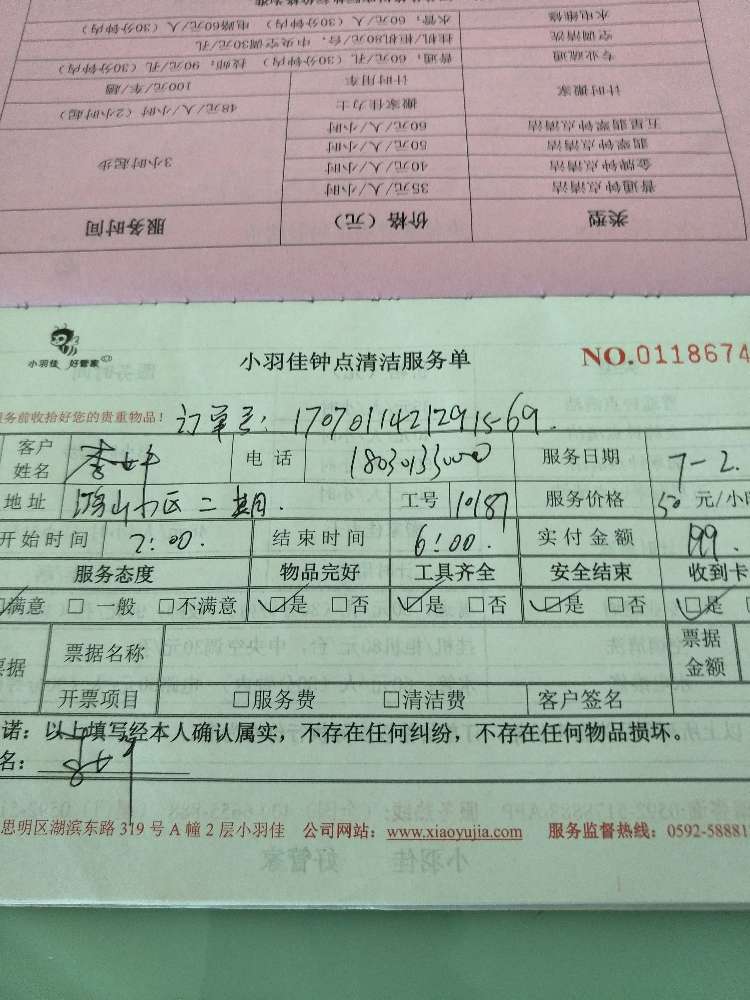 水电维修 水管：60元/人（30分钟内） 电路60元/人（30分钟内）
空调清洗 挂机/柜机80元/台，中央空调30元/孔
专业疏通 普通：60元/孔（30分钟内） 技师：90元/孔（30分钟内）
计时搬家 计时用车 100元/车/趟
搬家佳力士 48元/人/小时（2小时起）
五星翡翠钟点清洁 60元/人/小时
翡翠钟点清洁 50元/人/小时 3小时起步
金牌钟点清洁 40元/人/小时
普通钟点清洁 35元/人/小时
类型 价格（元） 服务时间
小羽佳 好管家
小羽佳钟点清洁服务单 NO.0118674
务前收拾好您的贵重物品！ 订单号：1707011421291569.
客户姓名 电话 18030133000 服务日期 7-2.
地址 二期. 工号 10187 服务价格 50 元/小
开始时间 2:00. 结束时间 6:00. 实付金额 199.
服务态度 物品完好 工具齐全 安全结束 收到卡
满意 □ 一般 □不满意 ☑是 □否 ☑是 □否 ☑是 □否 ☑是
据 票据名称 票据金额
开票项目 □服务费 □清洁费 客户签名
诺：以上填写经本人确认属实，不存在任何纠纷，不存在任何物品损坏。
名：
思明区湖滨东路 319 号 A 幢 2 层小羽佳 公司网站：www.xiaoyujia.com 服务监督热线：0592-58881